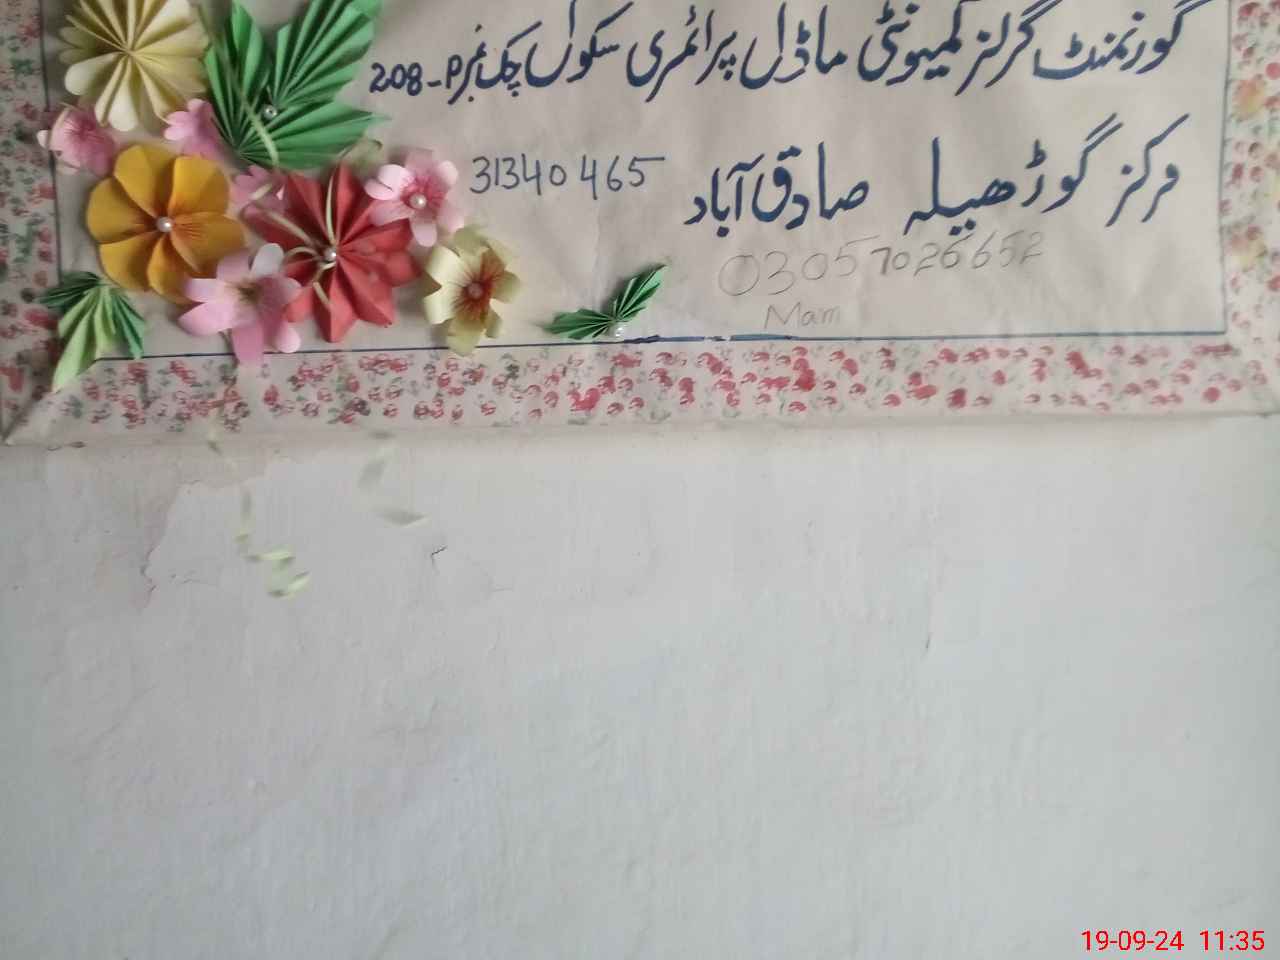 گورنمنٹ گرلز کمیونٹی ماڈل پرائمری سکول چک نمبر 208-P
مرکز گوڑھیلہ صادق آباد 31340465
03057026652
Mam
19-09-24 11:35